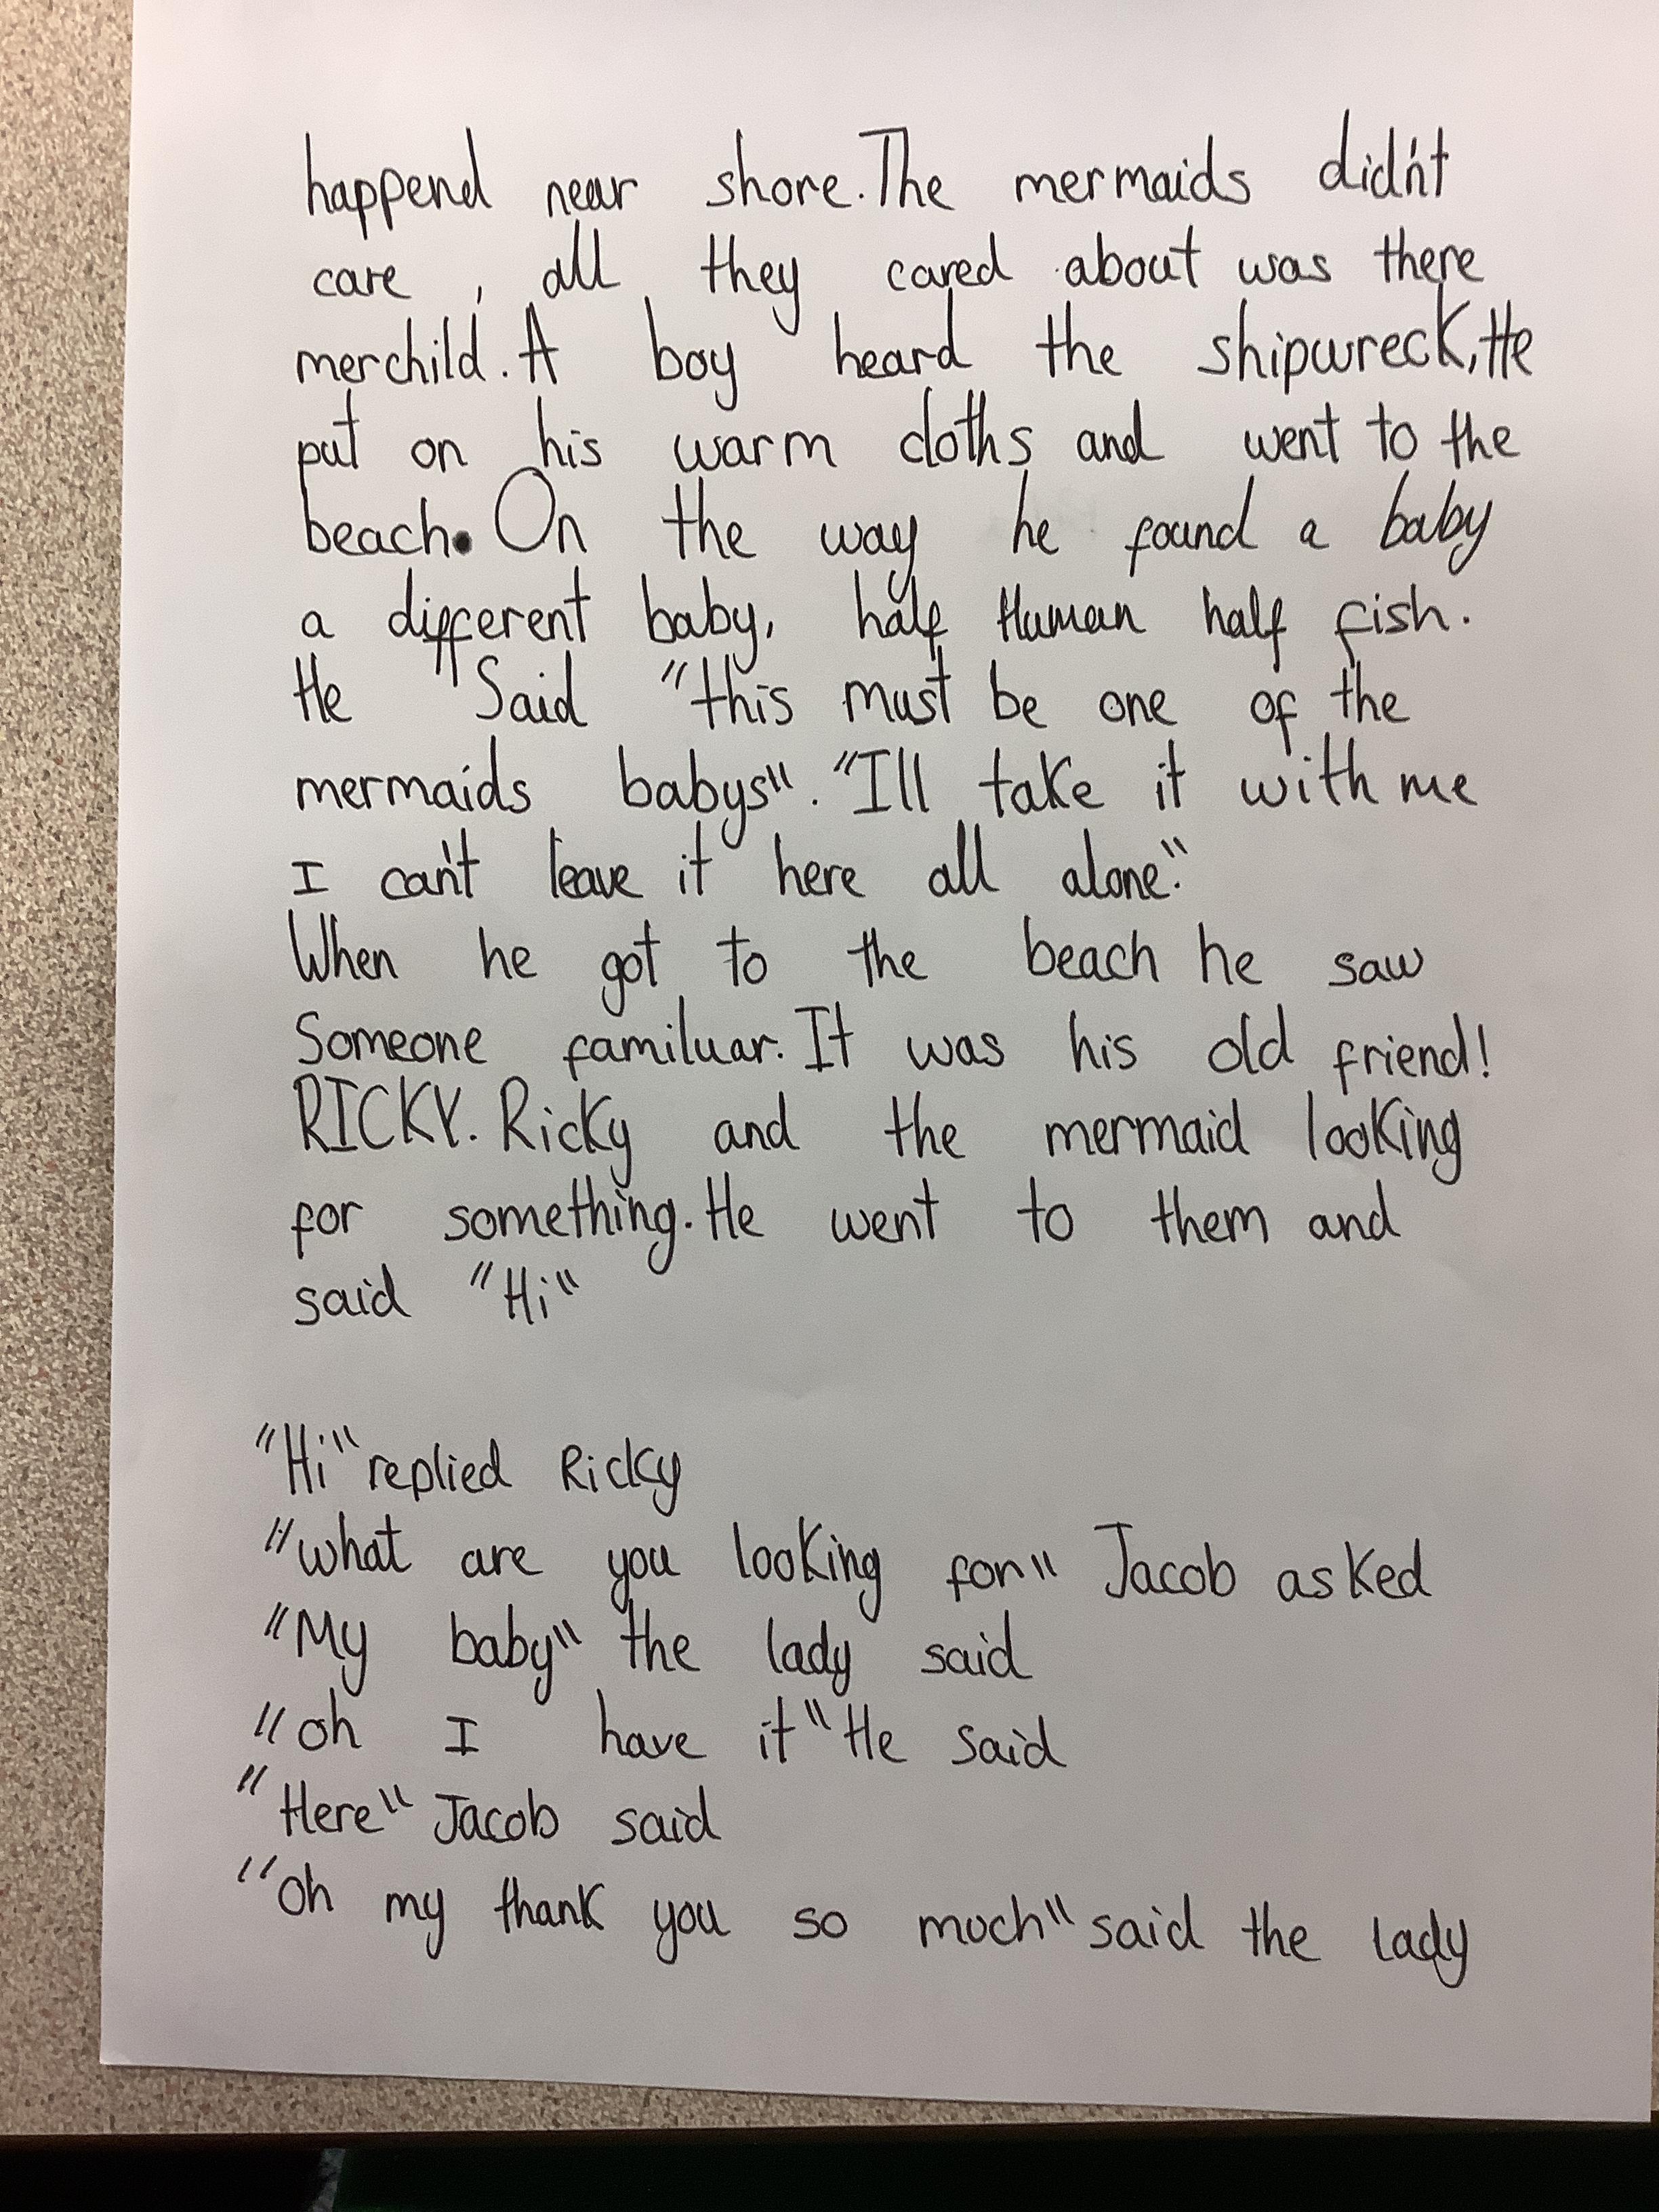 happend near shore. The mermaids didn't
care , all they cared about was there
merchild. A boy heard the shipwreck, He
put on his warm cloths and went to the
beach. On the way he found a baby
a different baby, half Human half fish.
He Said "this must be one of the
mermaids babys". "Ill take it with me
I can't leave it here all alone."
When he got to the beach he saw
Someone familuar. It was his old friend!
RICKY. Ricky and the mermaid looking
for something. He went to them and
said "Hi"
"Hi" replied Ricky
"what are you looking for" Jacob asked
"My baby" the lady said
"oh I have it" He said
"Here" Jacob said
"Oh my thank you so much" said the lady